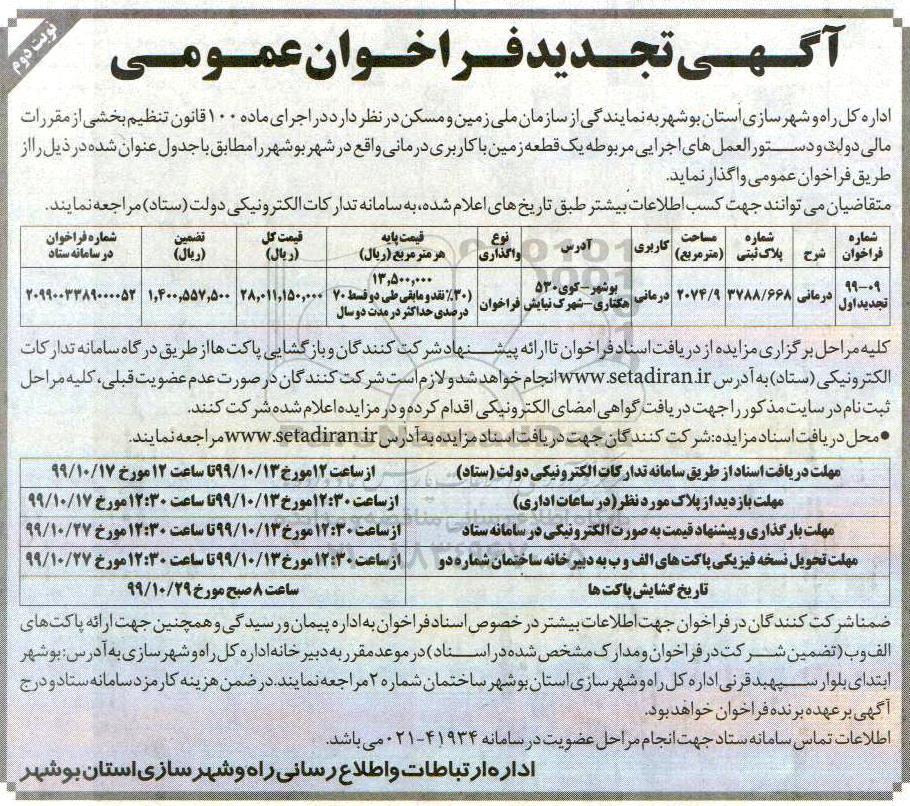 نوبت دوم
آگهی تجدید فراخوان عمومی
اداره کل راه و شهرسازی استان بوشهر به نمایندگی از سازمان ملی زمین و مسکن در نظر دارد در اجرای ماده ۱۰۰ قانون تنظیم بخشی از مقررات
مالی دولت و دستورالعمل های اجرایی مربوطه یک قطعه زمین با کاربری درمانی واقع در شهر بوشهر را مطابق با جدول عنوان شده در ذیل را از
طریق فراخوان عمومی واگذار نماید.
متقاضیان می توانند جهت کسب اطلاعات بیشتر طبق تاریخ های اعلام شده، به سامانه تدارکات الکترونیکی دولت (ستاد) مراجعه نمایند.
شماره فراخوان | شرح | شماره پلاک ثبتی | مساحت (مترمربع) | کاربری | آدرس | نوع واگذاری | قیمت پایه هر مترمربع (ریال) | قیمت کل (ریال) | تضمین (ریال) | شماره فراخوان در سامانه ستاد
۹۹-۰۹ تجدید اول | درمانی | ۳۷۸۸/۶۶۸ | ۲۰۷۴/۹ | درمانی | بوشهر-کوی ۵۳۰ هکتاری-شهرک نیایش | فراخوان | ۱۳,۵۰۰,۰۰۰ (۳۰٪ نقد و مابقی طی دو قسط ۷۰ درصدی حداکثر در مدت دو سال | ۲۸,۰۱۱,۱۵۰,۰۰۰ | ۱,۴۰۰,۵۵۷,۵۰۰ | ۲۰۹۹۰۰۳۳۸۹۰۰۰۰۵۲
کلیه مراحل برگزاری مزایده از دریافت اسناد فراخوان تا ارائه پیشنهاد شرکت کنندگان و بازگشایی پاکت ها از طریق درگاه سامانه تدارکات
الکترونیکی (ستاد) به آدرس www.setadiran.ir انجام خواهد شد و لازم است شرکت کنندگان در صورت عدم عضویت قبلی، کلیه مراحل
ثبت نام در سایت مذکور را جهت دریافت گواهی امضای الکترونیکی اقدام کرده و در مزایده اعلام شده شرکت کنند.
•محل دریافت اسناد مزایده: شرکت کنندگان جهت دریافت اسناد مزایده به آدرس www.setadiran.ir مراجعه نمایند.
مهلت دریافت اسناد از طریق سامانه تدارکات الکترونیکی دولت (ستاد) | از ساعت ۱۲ مورخ ۹۹/۱۰/۱۳ تا ساعت ۱۲ مورخ ۹۹/۱۰/۱۷
مهلت بازدید از پلاک مورد نظر (در ساعات اداری) | از ساعت ۱۲:۳۰ مورخ ۹۹/۱۰/۱۳ تا ساعت ۱۲:۳۰ مورخ ۹۹/۱۰/۱۷
مهلت بارگذاری و پیشنهاد قیمت به صورت الکترونیکی در سامانه ستاد | از ساعت ۱۲:۳۰ مورخ ۹۹/۱۰/۱۳ تا ساعت ۱۲:۳۰ مورخ ۹۹/۱۰/۲۷
مهلت تحویل نسخه فیزیکی پاکت های الف و ب به دبیرخانه ساختمان شماره دو | از ساعت ۱۲:۳۰ مورخ ۹۹/۱۰/۱۳ تا ساعت ۱۲:۳۰ مورخ ۹۹/۱۰/۲۷
تاریخ گشایش پاکت ها | ساعت ۸ صبح مورخ ۹۹/۱۰/۲۹
ضمنا شرکت کنندگان در فراخوان جهت اطلاعات بیشتر در خصوص اسناد فراخوان به اداره پیمان و رسیدگی و همچنین جهت ارائه پاکت های
الف و ب (تضمین شرکت در فراخوان و مدارک مشخص شده در اسناد) در موعد مقرر به دبیرخانه اداره کل راه و شهرسازی به آدرس: بوشهر
ابتدای بلوار سپهبد قرنی اداره کل راه و شهرسازی استان بوشهر ساختمان شماره ۲ مراجعه نمایند. در ضمن هزینه کارمزد سامانه ستاد و درج
آگهی بر عهده برنده فراخوان خواهد بود.
اطلاعات تماس سامانه ستاد جهت انجام مراحل عضویت در سامانه ۴۱۹۳۴-۰۲۱ می باشد.
اداره ارتباطات و اطلاع رسانی راه و شهرسازی استان بوشهر